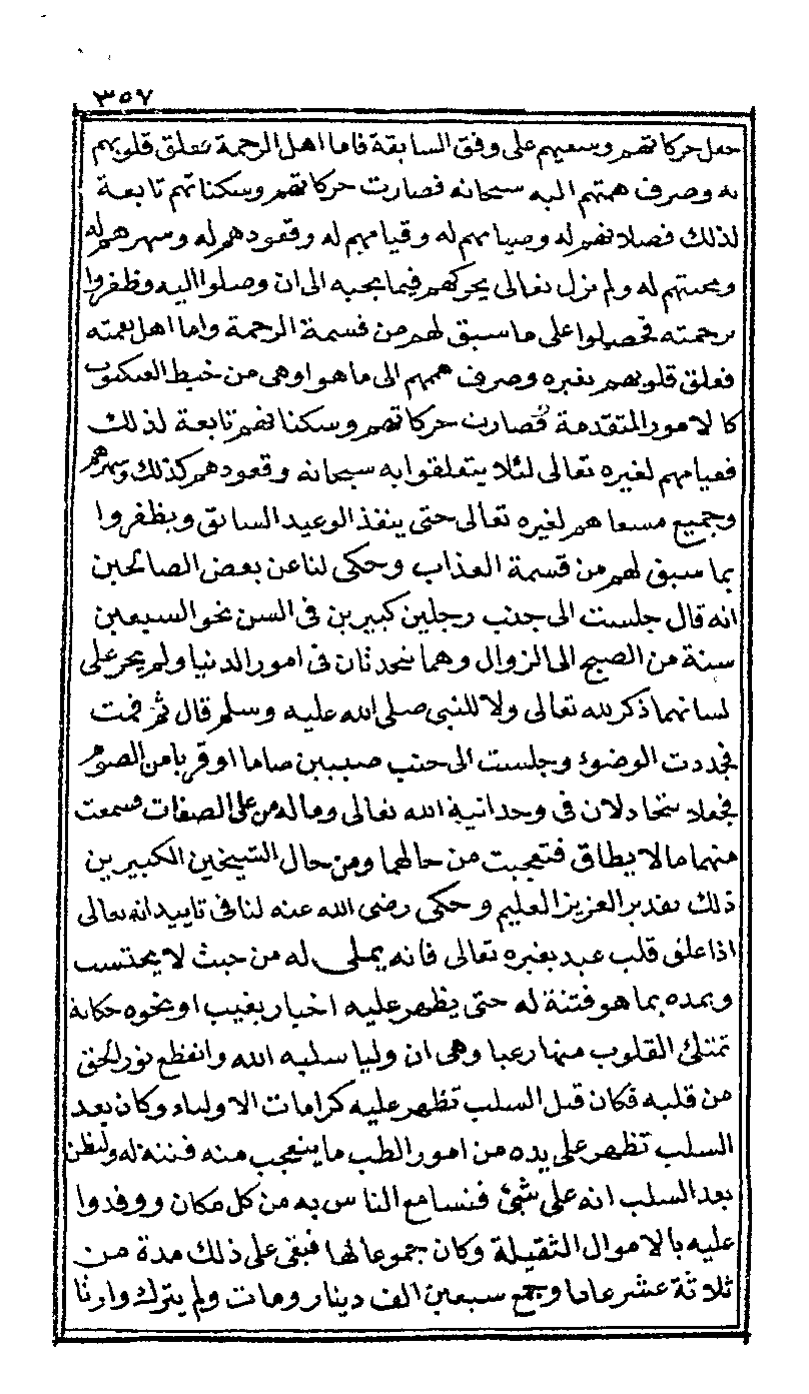 ٣٥٧
جعل حركاتهم وسعيهم على وفق السابقة فاما اهل الرحمة فعلق قلوبهم
به وصرف همتهم اليه سبحانه فصارت حركاتهم وسكناتهم تابعة
لذلك فصلاتهم له وصيامهم له وقيامهم له وقعودهم له وسهرهم له
ومحبتهم له ولم نزل تعالى يحركهم فيما يحبه الى ان وصلوا اليه وظفروا
برحمته فحصلوا على ما سبق لهم من قسمة الرحمة واما اهل نقمته
فعلق قلوبهم بغيره وصرف هممهم الى ما هو اوهى من خيط العنكبوت
كالامور المتقدمة فصارت حركاتهم وسكناتهم تابعة لذلك
فقيامهم لغيره تعالى لئلا يتعلقوا به سبحانه وقعودهم كذلك وسهرهم
وجميع مسعاهم لغيره تعالى حتى ينفذ الوعيد السابق ويظفروا
بما سبق لهم من قسمة العذاب وحكى لنا عن بعض الصالحين
انه قال جلست الى جنب رجلين كبيرين في السن نحو السبعين
سنة من الصبح الى الزوال وهما يتحدثان في امور الدنيا ولم يجر على
لسانهما ذكر لله تعالى ولا للنبي صلى الله عليه وسلم قال ثم قمت
فجددت الوضوء وجلست الى جنب صبيين صاما او قربا من الصوم
فجعلا يتجادلان في وحدانية الله تعالى وماله من على الصفات فسمعت
منهما مالا يطاق فتعجبت من حالهما ومن حال الشيخين الكبيرين
ذلك تقدير العزيز العليم وحكى رضى الله عنه لنا في تاييد انه تعالى
اذا علق قلب عبد بغيره تعالى فانه يملى له من حيث لا يحتسب
ويمده بما هو فتنة له حتى يظهر عليه اخبار بغيب او نحوه حكاية
تمتلئ القلوب منها رعبا وهى ان وليا سلبه الله وانقطع نور الحق
من قلبه فكان قبل السلب تظهر عليه كرامات الاولياء وكان بعد
السلب تظهر على يده من امور الطب ما يتعجب منه فتنة له وليظن
بعد السلب انه على شئ فتسامع الناس به من كل مكان ووفدوا
عليه بالاموال الثقيلة وكان جموعا لها فبقى على ذلك مدة من
ثلاثة عشر عاما وجمع سبعين الف دينار ومات ولم يترك وارثا